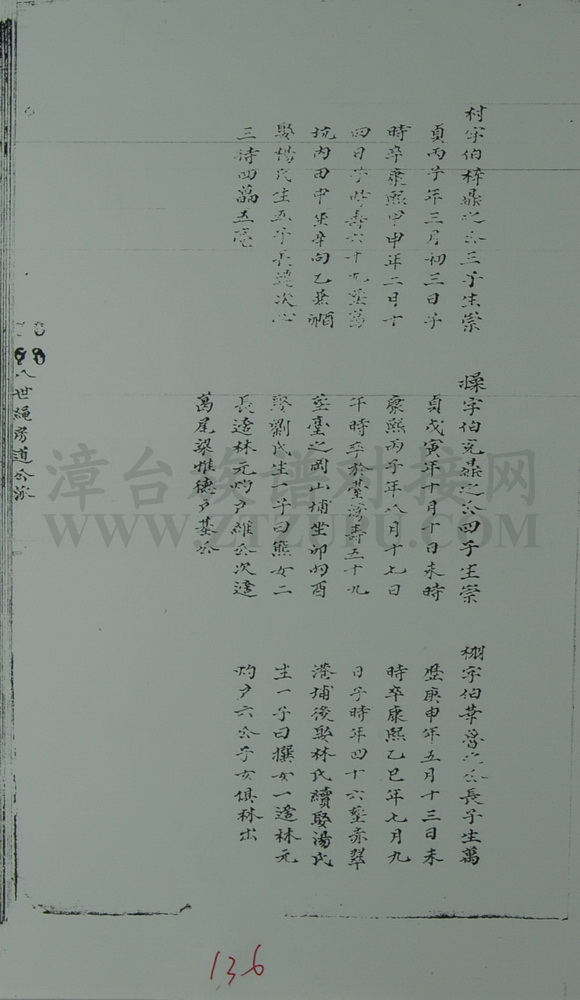 村字伯梓鼎之公三子生崇
貞丙子年三月初三日子
時卒康熙甲申年二月十
四日子時壽六十九塟萬
坑內田中坐辛向乙兼酉
娶楊氏生五子長達次心
三待四萬五亮
燥字伯完鼎之公四子生崇
貞戊寅年十月十日未時
康熙丙子年八月十七日
午時卒於臺灣壽五十九
塟臺之岡山埔坐卯向酉
娶劉氏生一子曰熊女二
長適林元灼戶維公次適
萬尾梁惟德戶基公
棚字伯華魯之公長子生萬
歷庚申年五月十三日未
時卒康熙乙巳年七月九
日子時年四十六塟赤翠
港埔後娶林氏續娶湯氏
生一子曰撰女一適林元
灼戶六公子女俱林出
八世繩房道公派
漳台族谱对接网
WWW.ZTZUPU.COM
136